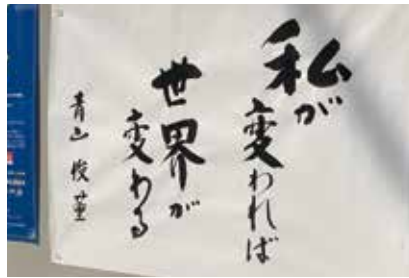 私が
変われば
世界が
変わる
青山俊董